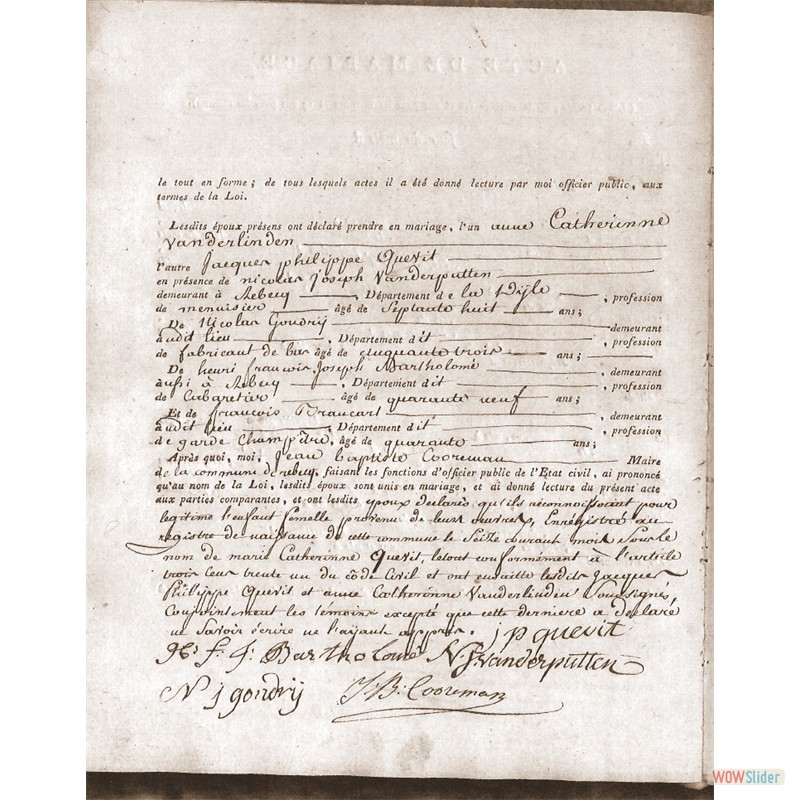 le tout en forme ; de tous lesquels actes il a été donné lecture par moi officier public, aux
termes de la Loi.
Lesdits époux présens ont déclaré prendre en mariage, l'un anne Catherinne
Vanderlinden
l'autre Jacques philippe Quevit
en présence de nicolas joseph Vanderputten
demeurant à Rebecq , Département de la Dÿle , profession
de menuisier âgé de Septante huit ans ;
De Nicolas Goudrÿ demeurant
audit lieu , Département dit , profession
de fabricant de bas âgé de cinquante trois ans ;
De henri francois Joseph Bartholomé , demeurant
aussi à Rebecq , Département dit , profession
de Cabaretier âgé de quarante neuf ans ;
Et de francois Brancart , demeurant
audit lieu , Département dit , profession
de garde Champêtre, âgé de quarante ans ;
Après quoi, moi, Jean baptiste Cooreman Maire
de la commune de rebecq, faisant les fonctions d'officier public de l'Etat civil, ai prononcé
qu'au nom de la Loi, lesdits époux sont unis en mariage, et ai donné lecture du présent acte
aux parties comparantes, et ont lesdits epoux declarés qu'ils reconnoissoient pour
legitime l'enfant femelle provenu de leurs œuvres, Enregistré au
registre de naissance de cette commune le Seize courant mois Sous le
nom de marie Catherinne Quevit, le tout conformément à l'article
trois cens trente un du côde Civil et ont ensuitte lesdits Jacques
Philippe Quevit et anne Catherinne Vanderlinden Soussignés,
Conjointement les témoins excepté que cette derniere a declaré
ne Savoir écrire ne l'aijant appris. j p quevit
H. f. J. Bartholomé N. J. Vanderputten
N j goudrij J. B. Cooreman
WOWSlider